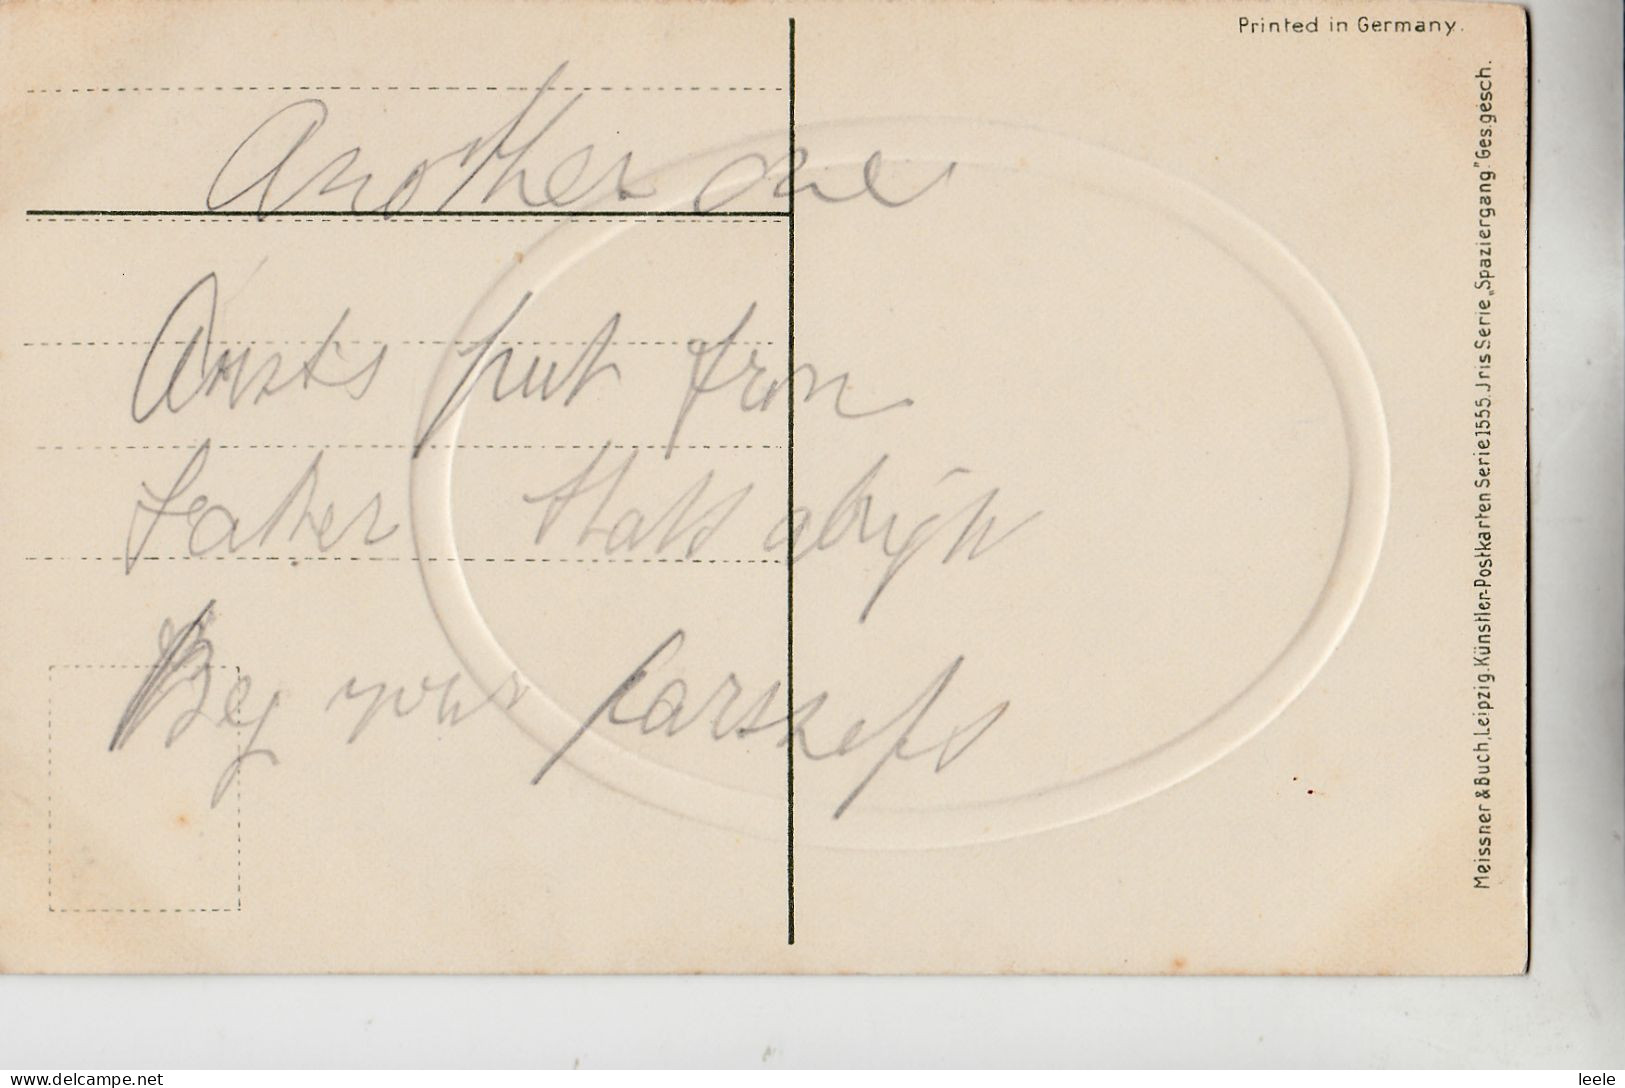 Printed in Germany.
Another one
put from
Father that's
Beg your
Meissner & Buch, Leipzig. Künstler-Postkarten Serie 1555. Jris Serie „Spaziergang.” Ges. gesch.
https://www.delcampe.net
leele